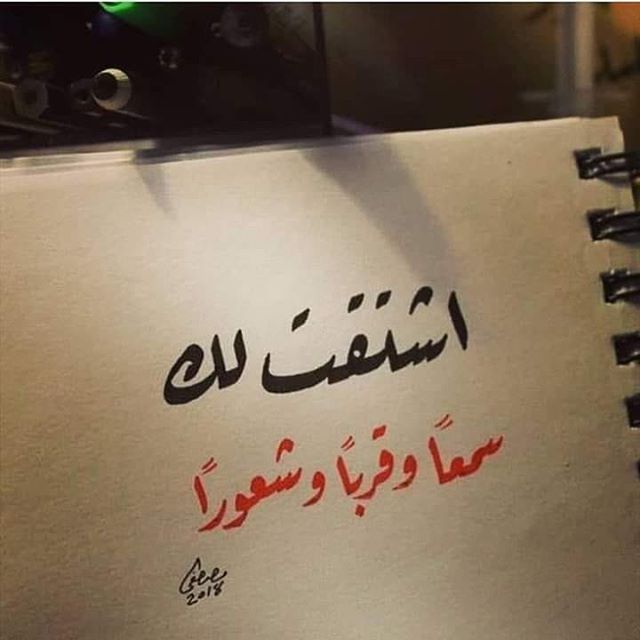 اشتقت لك
سمعاً وقرباً وشعوراً
2018